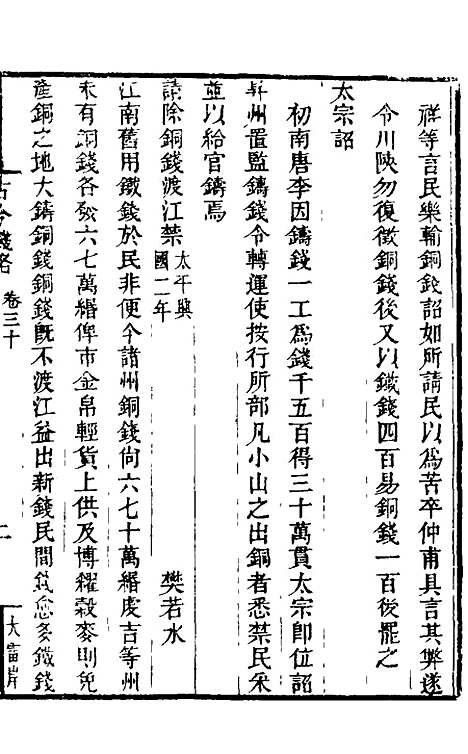 祥等言民樂輸銅錢詔如所請民以爲苦卒仲甫具言其弊遂
令川陝勿復徵銅錢後又以鐵錢四百易銅錢一百後罷之
太宗詔
初南唐李因鑄錢一工爲錢千五百得三十萬貫太宗卽位詔
昇州置監鑄錢令轉運使按行所部凡小山之出銅者悉禁民采
並以給官鑄焉
請除銅錢渡江禁 太平興國二年 樊若水
江南舊用鐵錢於民非便今諸州銅錢尙六七十萬緡虔吉等州
未有銅錢各發六七萬緡俾市金帛輕貨上供及博糴穀麥則免
產銅之地大鑄銅錢銅錢旣不渡江益出新錢民間錢愈多鐵錢
古今錢略 卷三十 二